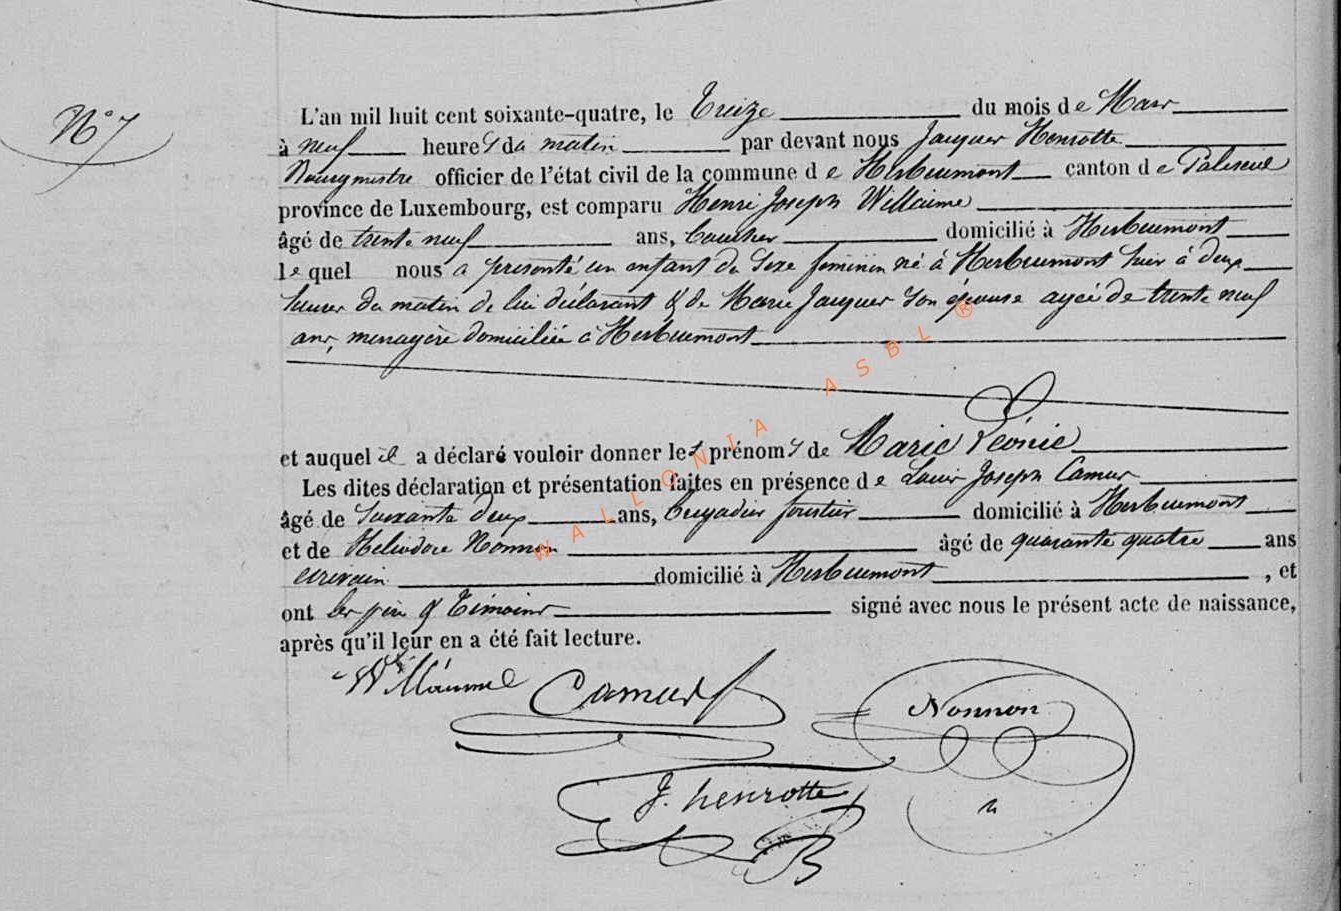 N° 7
L'an mil huit cent soixante-quatre, le Treize du mois de Mars
à neuf heures du matin par devant nous Jacques Henrotte
Bourgmestre officier de l'état civil de la commune de Herbeumont canton de Paliseul
province de Luxembourg, est comparu Henri Joseph Willaime
âgé de trente neuf ans, domicilié à Herbeumont
lequel nous a présenté un enfant du Sexe féminin né à Herbeumont hier à deux
heures du matin de lui déclarant & de Marie Jacques son épouse agée de trente neuf
ans, menagère domiciliée à Herbeumont
et auquel il a déclaré vouloir donner les prénoms de Marie Léonie
Les dites déclaration et présentation faites en présence de Louis Joseph Camus
âgé de Soixante deux ans, brigadier forestier domicilié à Herbeumont
et de Héliodore Nonnon âgé de quarante quatre ans
écrivain domicilié à Herbeumont, et
ont les père & Témoins signé avec nous le présent acte de naissance,
après qu'il leur en a été fait lecture.
Camus Nonnon
J. henrotte
WALLONIA ASBL ®